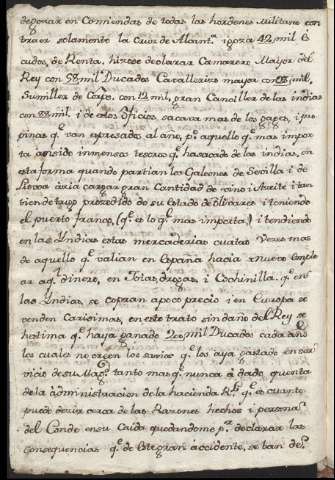 de gozar en Comiendas de todas las hordenes Militares con
traer solamente la Cruz de Alcant.ª i goza 42 mil E
cudos de Renta, hizose declarar Camarero Mayor del
Rey con 98 mil Ducados Cavallerizo mayor con mil,
Sumiller de Corps con 12 mil, gran Canciller de las indias
con 48 mil i de estos oficios sacava mas de los gajes, i pro
pinas q.^e van expresados al año, p.º aquello q.^e mas impor
ta a sido inmensos tesoros q.^e ha sacado de las indias, en
esta forma quando partian los Galeones de Sevilla i de
Lisboa acia cargar gran Cantidad de vino i Aceite i tan
bien de trigo prozedido de su estado de Olivares i teniendo
el puerto franco, (q.^e es lo q.^e mas importa) i tendiendo
en las Yndias estas mercadurias cuatas Vezes mas
de aquello q.^e valian en España hacia nuevo emple
ar aq.^l dinero, en Joias, drogas, i Cochinilla q.^e en
las Yndias, se copran a poco precio i en Europa se
venden Carissimas, en este trato sin daño del Rey se
hestima q.^e haya ganado 200 mil Ducados cada año
los cuales no creen los suyos q.^e los aya gastado en ser
vicio de su Mag.^d tanto mas q.^e nunca á dado quenta
de la administracion de la hacienda R.^l q.^e es cuanto
puedo dezir acerca de las Razones hechos i persona
del Conde en su Caida quedandome p.ª declarar las
consequencias q.^e de este gran accidente, se han de